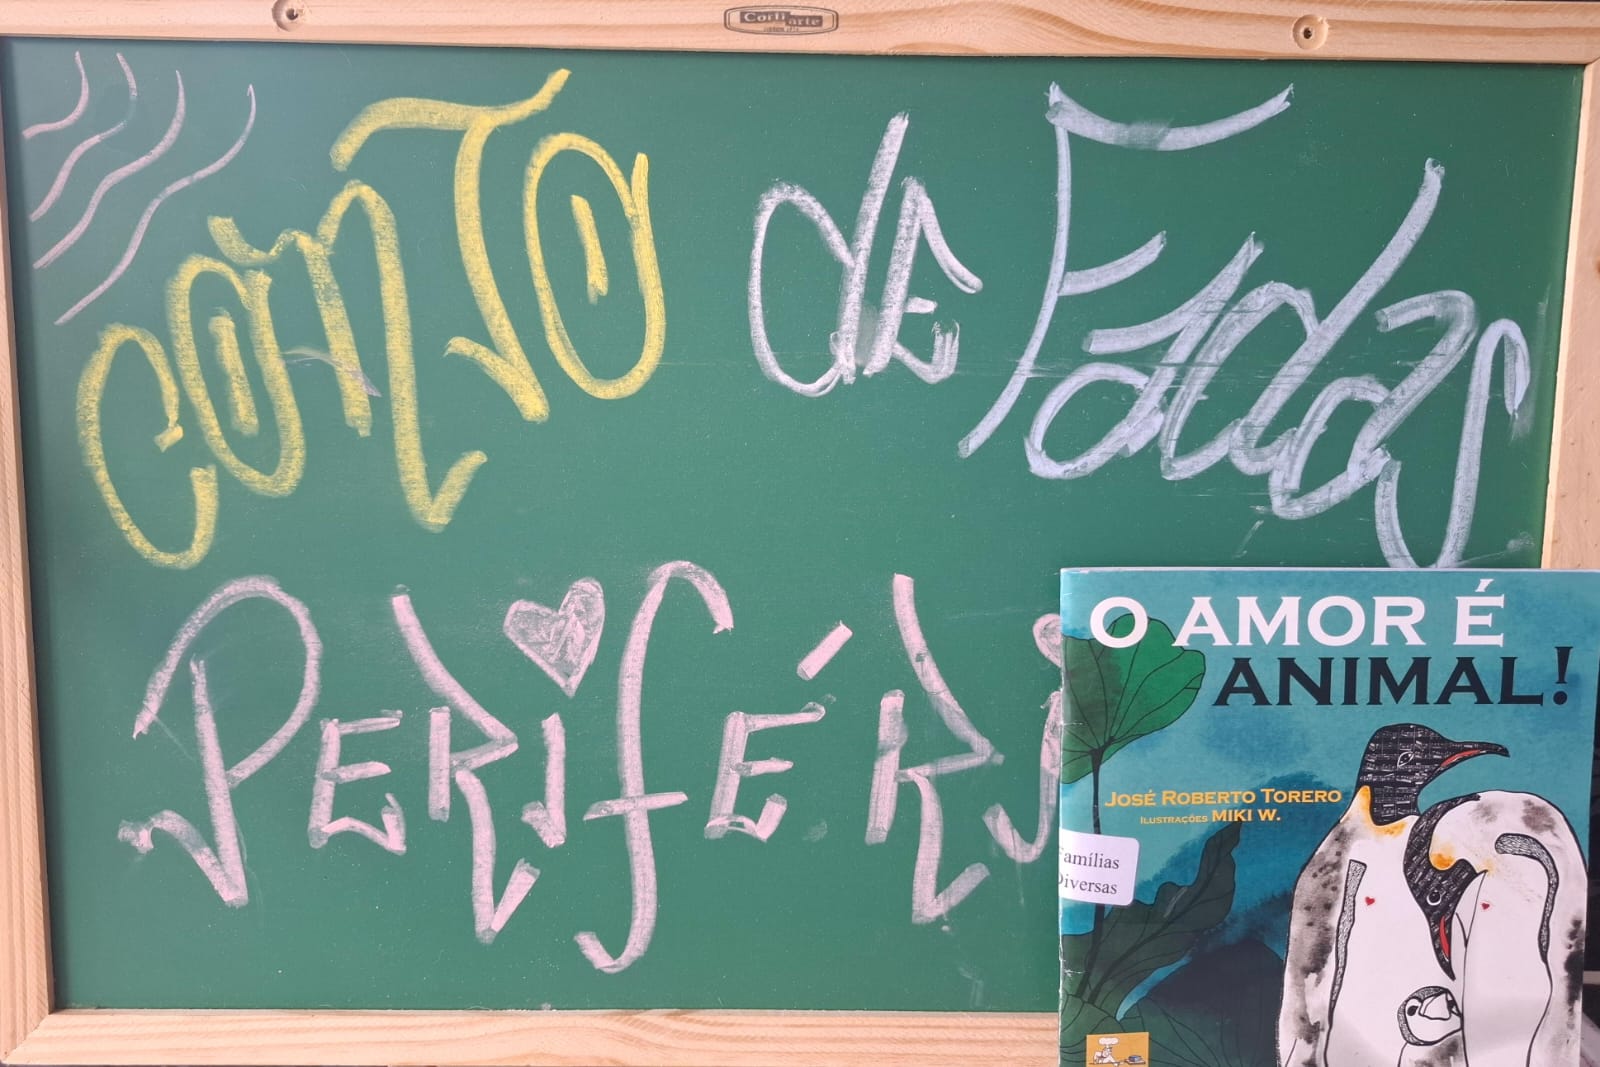 Corti arte
CONTO de Fadas
PERIFÉRI
O AMOR É
ANIMAL!
JOSÉ ROBERTO TORERO
ILUSTRAÇÕES MIKI W.
Famílias
Diversas